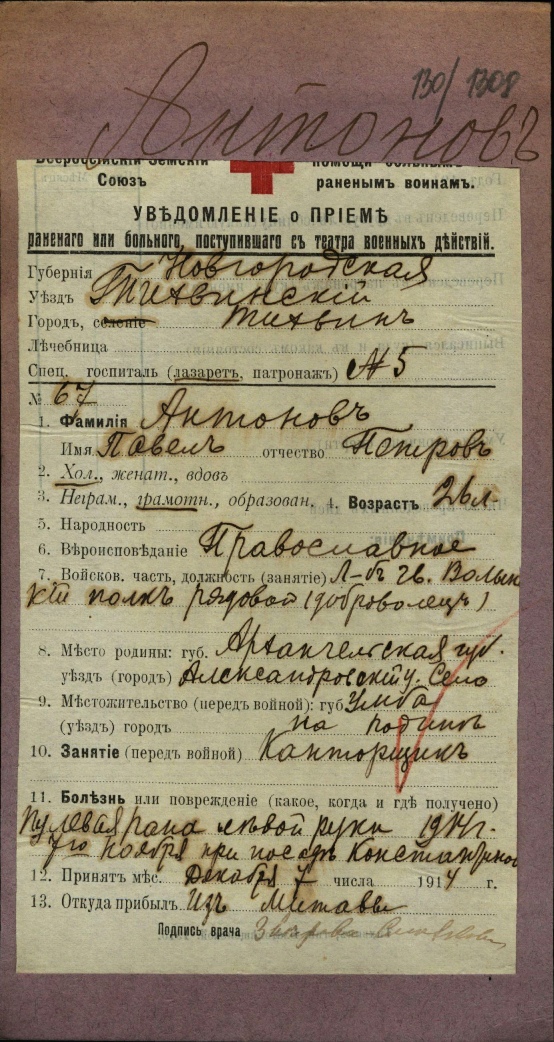 130/1308
Антоновъ
Всероссійскій Земскій помощи больнымъ
Союзъ раненымъ воинамъ.
УВѢДОМЛЕНІЕ о ПРІЕМѢ
раненаго или больного, поступившаго съ театра военныхъ дѣйствій.
Губернія Новгородская
Уѣздъ Тихвинскій
Городъ, селеніе Тихвинъ
Лѣчебница
Спец. госпиталь (лазаретъ, патронажъ) № 5
№ 67
1. Фамилія Антоновъ
Имя Павелъ отчество Петровъ
2. Хол., женат., вдовъ
3. Неграм., грамотн., образован. 4. Возрастъ 26 л.
5. Народность
6. Вѣроисповѣданіе Православное
7. Войсков. часть, должность (занятіе) Л-гв. Волын
скій полкъ рядовой (доброволецъ)
8. Мѣсто родины: губ. Архангельская губ.
уѣздъ (городъ) Александровскій у. Село
9. Мѣстожительство (передъ войной): губ Умба
(уѣздъ) городъ на родинѣ
10. Занятіе (передъ войной) Канторщикъ
11. Болѣзнь или поврежденіе (какое, когда и гдѣ получено)
Пулевая рана лѣвой руки 1914 г.
7го ноября при посадѣ Константинов
12. Принятъ мѣс. Декабря 7 числа 1914 г.
13. Откуда прибылъ Изъ Митавы
Подпись врача